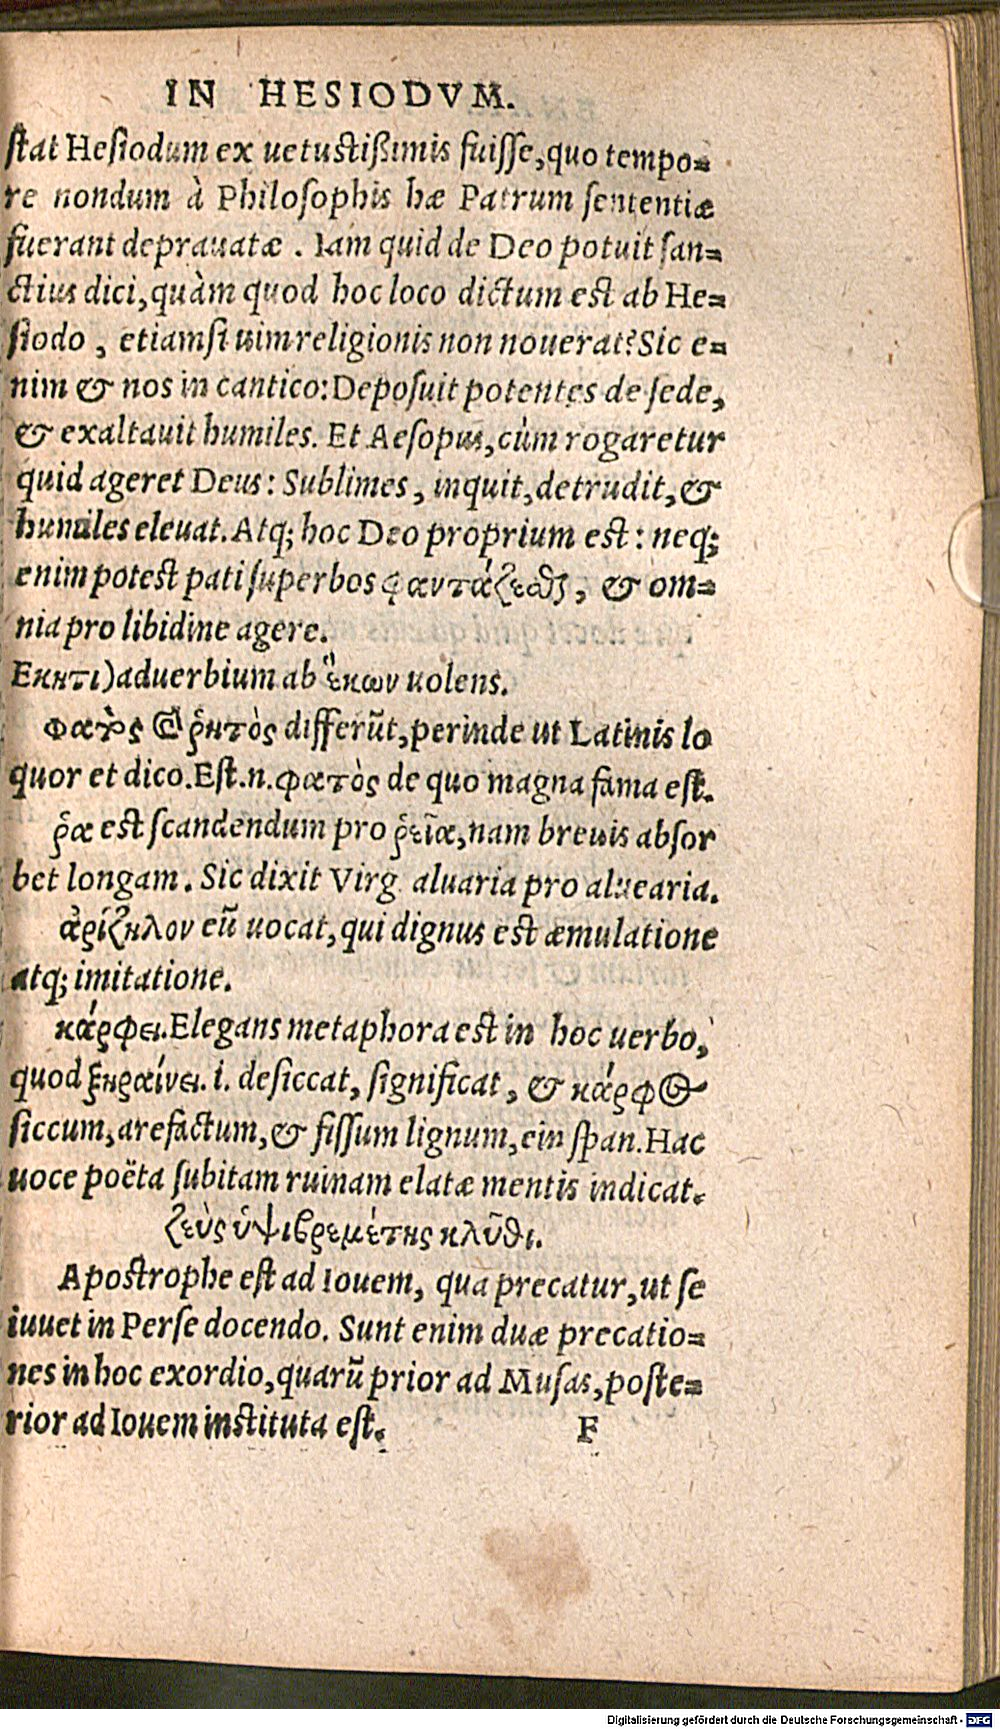 IN HESIODVM.
ſtat Heſiodum ex uetuſtißimis fuiſſe, quo tempo=
re nondum à Philoſophis hæ Patrum ſententiæ
fuerant deprauatæ. Iam quid de Deo potuit ſan=
ctius dici, quàm quod hoc loco dictum eſt ab He=
ſiodo, etiamſi uim religionis non nouerat? Sic e=
nim & nos in cantico: Depoſuit potentes de ſede,
& exaltauit humiles. Et Aeſopus, cùm rogaretur
quid ageret Deus: Sublimes, inquit, detrudit, &
humiles eleuat. Atq; hoc Deo proprium eſt: neq;
enim poteſt pati ſuperbos φαντάζεσθ, & om=
nia pro libidine agere.
Εκητι) aduerbium ab ἕκων uolens.
φατὸς & ῥητὸς differũt, perinde ut Latinis lo
quor et dico. Eſt.n. φατὸς de quo magna fama eſt.
ῥα eſt ſcandendum pro ῥεῖα, nam breuis abſor
bet longam. Sic dixit Virg. aluaria pro aluearia.
ἀρίζηλον eũ uocat, qui dignus eſt æmulatione
atq; imitatione.
κάρφει. Elegans metaphora eſt in hoc uerbo,
quod ξηραίνει. i. deſiccat, ſignificat, & κάρφος
ſiccum, arefactum, & fiſſum lignum, ein ſpan. Hac
uoce poëta ſubitam ruinam elatæ mentis indicat.
ζεὺς ὑψιβρεμέτης κλῦθι.
Apoſtrophe eſt ad Iouem, qua precatur, ut ſe
iuuet in Perſe docendo. Sunt enim duæ precatio=
nes in hoc exordio, quarũ prior ad Muſas, poſte=
rior ad Iouem inſtituta eſt.
F
Digitalisierung gefördert durch die Deutsche Forschungsgemeinschaft - DFG